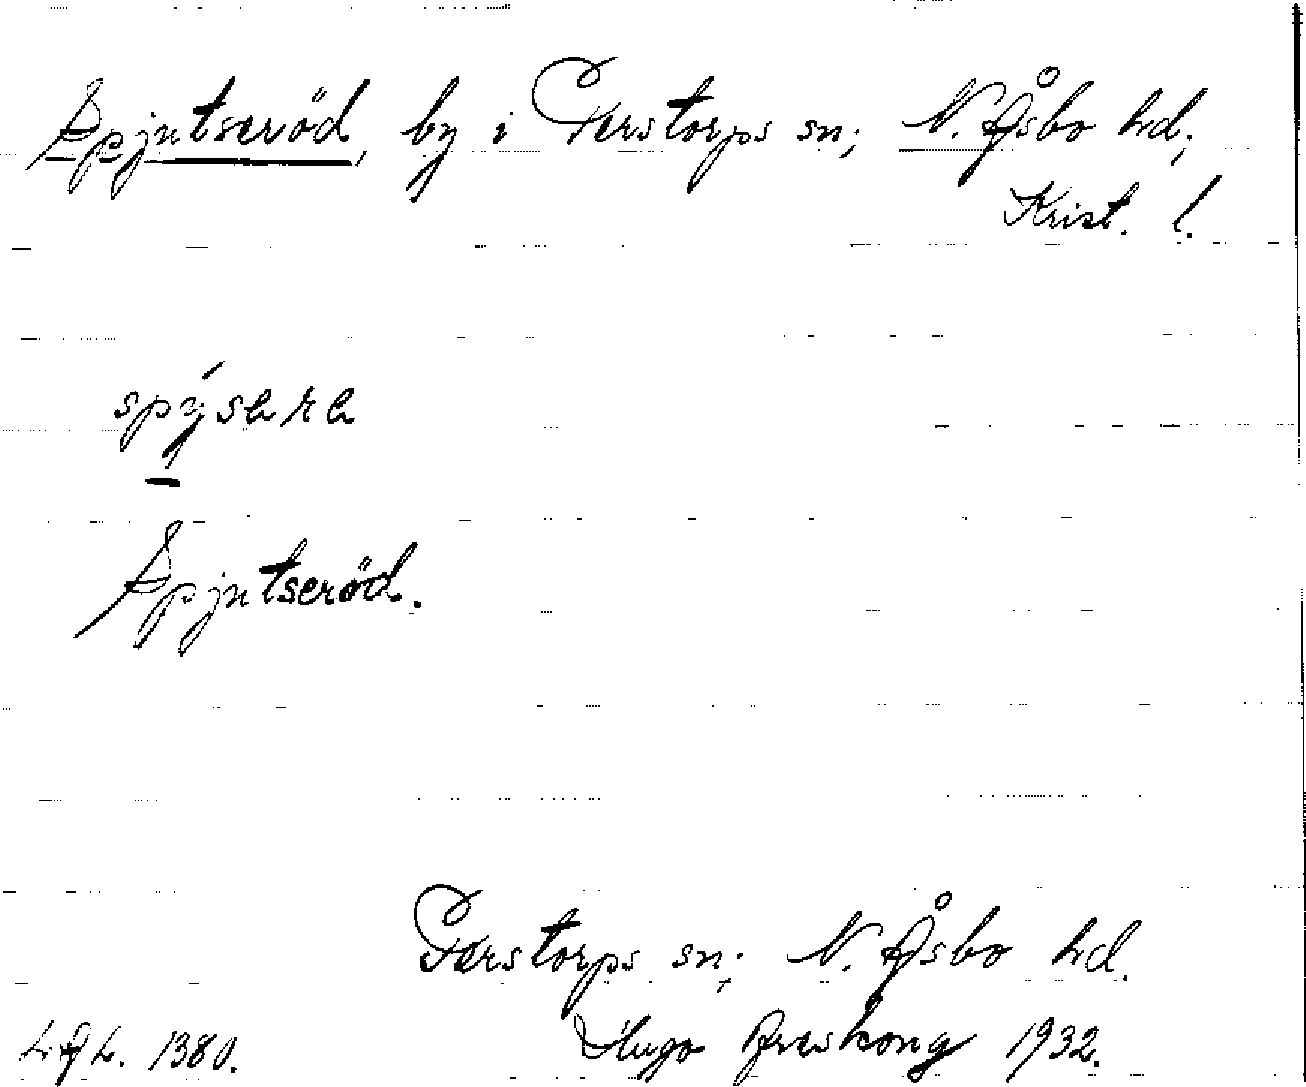 Spjutseröd, by i Perstorps sn; N. Åsbo hd;
Krist. l.
Spjutseröd.
Perstorps sn; N. Åsbo hd.
L.A.L. 1380. Hugo Areskoug 1932.